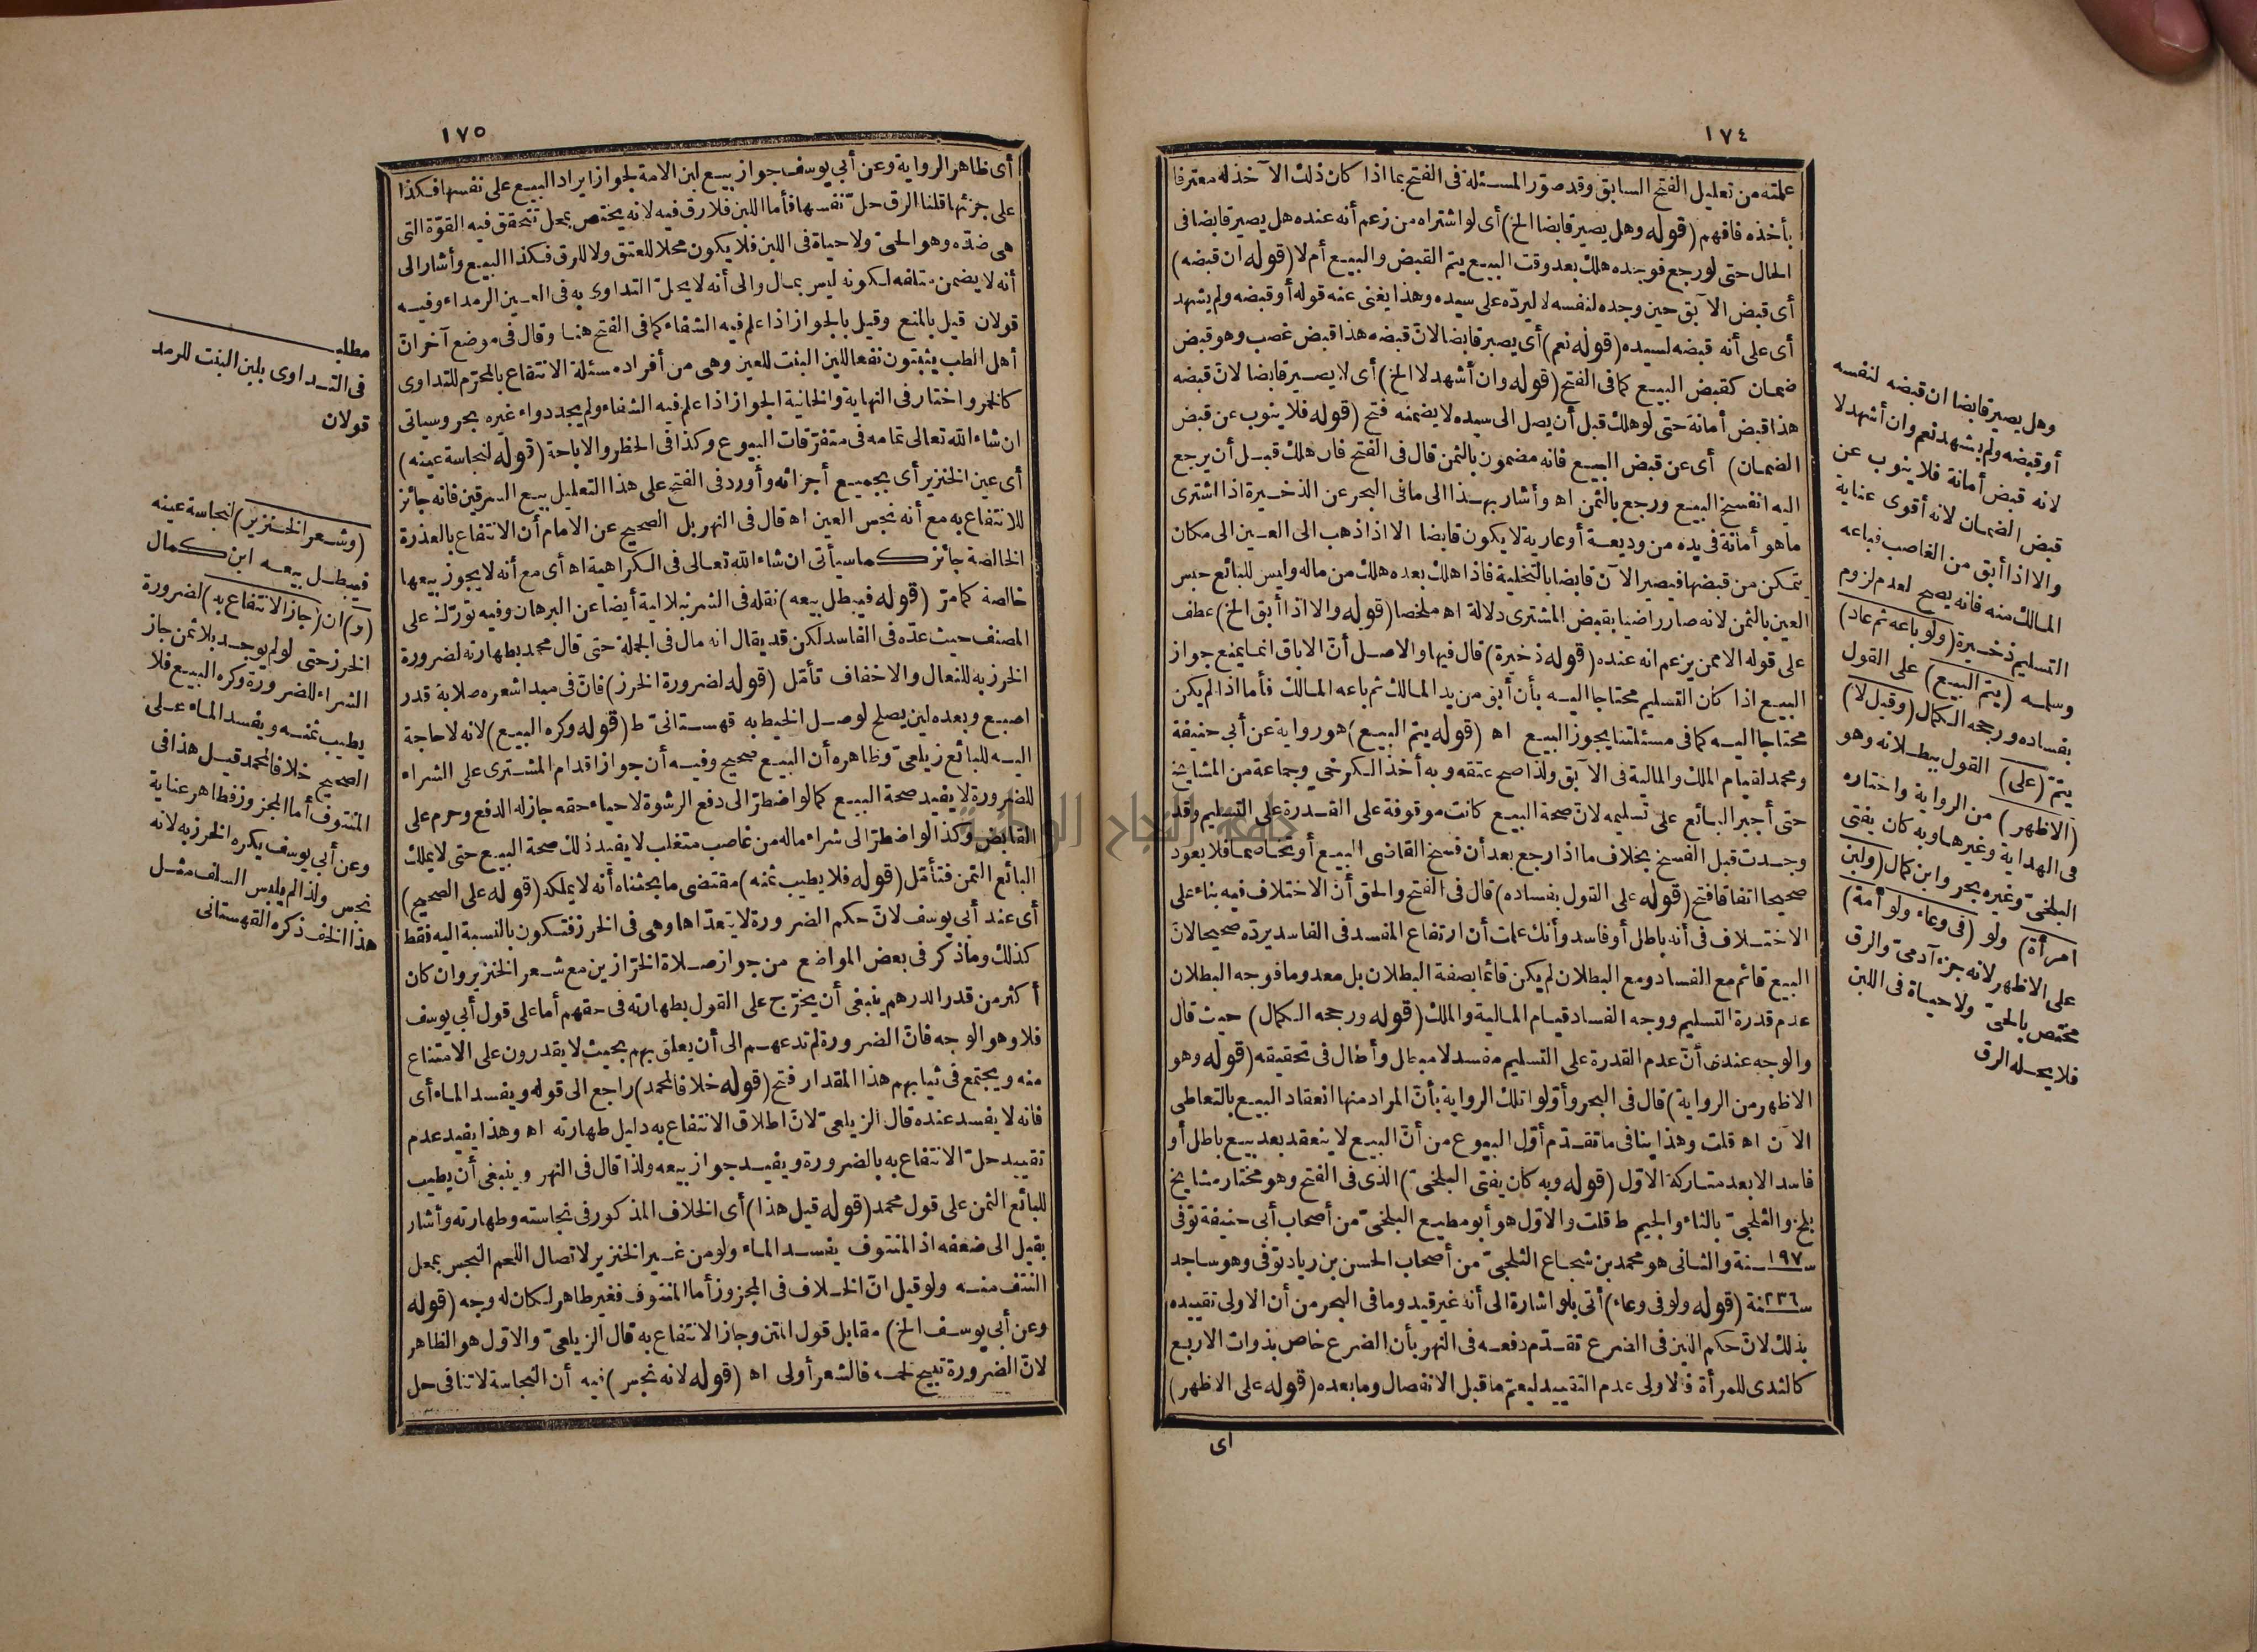 ١٧٤
علمته من تعليل الفتح السابق وقد صوّر المسئلة فى الفتح بما اذا كان ذلك الآخذ له معترفا
بأخذه فافهم (قوله وهل يصير قابضا الخ) أى لو اشتراه من زعم أنه عنده هل يصير قابضا فى
الحال حتى لو رجع فوجده هلك بعد وقت البيع يتم القبض والبيع أم لا (قوله ان قبضه)
أى قبض الآبق حين وجده لنفسه لا ليردّه على سيده وهذا يغنى عنه قوله أو قبضه ولم يشهد
أى على أنه قبضه لسيده (قوله نعم) أى يصير قابضا لانّ قبضه هذا قبض غصب وهو قبض
ضمان كقبض البيع كما فى الفتح (قوله وان أشهد لا الخ) أى لا يصير قابضا لانّ قبضه
هذا قبض أمانة حتى لو هلك قبل أن يصل الى سيده لا يضمنه فتح (قوله فلا ينوب عن قبض
الضمان) أى عن قبض البيع فانه مضمون بالثمن قال فى الفتح فان هلك قبل أن يرجع
اليه انفسخ البيع ورجع بالثمن اه وأشار بهذا الى ما فى البحر عن الذخيرة اذا اشترى
ما هو أمانة فى يده من وديعة أو عارية لا يكون قابضا الا اذا ذهب الى العين الى مكان
يتمكن من قبضها فيصير الآن قابضا بالتخلية فاذا هلك بعده هلك من ماله وليس للبائع حبس
العين بالثمن لانه صار راضيا بقبض المشترى دلالة اه ملخصا (قوله والا اذا أبق الخ) عطف
على قوله الا ممن يزعم انه عنده (قوله ذخيرة) قال فيها والاصل أنّ الاباق انما يمنع جواز
البيع اذا كان التسليم محتاجا اليه بأن أبق من يد المالك ثم باعه المالك فأما اذا لم يكن
محتاجا اليه كما فى مسئلتنا يجوز البيع اه (قوله يتم البيع) هو رواية عن أبى حنيفة
ومحمد لقيام الملك والمالية فى الآبق ولذا صح عتقه وبه أخذ الكرخى وجماعة من المشايخ
حتى أجبر البائع على تسليمه لانّ صحة البيع كانت موقوفة على القدرة على التسليم وقد
وجدت قبل الفسخ بخلاف ما اذا رجع بعد أن فسخ القاضى البيع أو تخاصما فلا يعود
صحيحا اتفاقا فتح (قوله على القول بفساده) قال فى الفتح والحق أنّ الاختلاف فيه بناء على
الاختلاف فى أنه باطل أو فاسد وأنك علمت أن ارتفاع المفسد فى الفاسد يردّه صحيحا لانّ
البيع قائم مع الفساد ومع البطلان لم يكن قائما بصفة البطلان بل معدوما فوجه البطلان
عدم قدرة التسليم ووجه الفساد قيام المالية والملك (قوله ورجحه الكمال) حيث قال
والوجه عندى أنّ عدم القدرة على التسليم مفسد لا مبطل وأطال فى تحقيقه (قوله وهو
الاظهر من الرواية) قال فى البحر وأوّلوا تلك الرواية بأنّ المراد منها انعقاد البيع بالتعاطى
الآن اه قلت وهذا ينافى ما تقدّم أوّل البيوع من أنّ البيع لا ينعقد بعد بيع باطل أو
فاسد الا بعد متاركة الاوّل (قوله وبه كان يفتى البلخىّ) الذى فى الفتح وهو مختار مشايخ
بلخ والثلجىّ بالثاء والجيم ط قلت والاوّل هو أبو مطيع البلخىّ من أصحاب أبى حنيفة توفى
سنة ١٩٧ والثانى هو محمد بن شجاع الثلجىّ من أصحاب الحسن بن زياد توفى وهو ساجد
سنة ٢٣٦ (قوله ولو فى وعاء) أتى بلو اشارة الى أنه غير قيد وما فى البحر من أن الاولى تقييده
بذلك لانّ حكم اللبن فى الضرع تقدّم دفعه فى النهر بأن الضرع خاص بذوات الاربع
كالثدى للمرأة فالاولى عدم التقييد ليعمّ ما قبل الانفصال وما بعده (قوله على الاظهر)
اى
وهل يصير قابضا ان قبضه لنفسه
أو قبضه ولم يشهد نعم وان أشهد لا
لانه قبض أمانة فلا ينوب عن
قبض الضمان لانه أقوى عناية
والا اذا أبق من الغاصب فباعه
المالك منه فانه يصح لعدم لزوم
التسليم ذخيرة (ولو باعه ثم عاد)
وسلمه (يتم البيع) على القول
بفساده ورجحه الكمال (وقيل لا)
يتمّ (على) القول ببطلانه وهو
(الاظهر) من الرواية واختاره
فى الهداية وغيرها وبه كان يفتى
البلخىّ وغيره بحر وابن كمال (ولبن
امرأة) ولو (فى وعاء ولو أمة)
على الاظهر لانه جزء آدمىّ والرق
مختص بالحىّ ولا حياة فى اللبن
فلا يحله الرق
١٧٥
أى ظاهر الرواية وعن أبى يوسف جواز بيع لبن الامة لجواز ايراد البيع على نفسها فكذا
على جزئها قلنا الرق حلّ نفسها فأما اللبن فلا رق فيه لانه يختص بمحل تتحقق فيه القوّة التى
هى ضدّه وهو الحىّ ولا حياة فى اللبن فلا يكون محلا للعتق ولا للرق فكذا البيع وأشار الى
أنه لا يضمن متلفه لكونه ليس بمال والى أنه لا يحلّ التداوى به فى العين الرمداء وفيه
قولان قيل بالمنع وقيل بالجواز اذا علم فيه الشفاء كما فى الفتح هنا وقال فى موضع آخر انّ
أهل الطب يثبتون نفعا للبن البنت للعين وهى من أفراد مسئلة الانتفاع بالمحرّم للتداوى
كالخمر واختار فى النهاية والخانية الجواز اذا علم فيه الشفاء ولم يجد دواء غيره بحر وسيأتى
ان شاء الله تعالى تمامه فى متفرّقات البيوع وكذا فى الحظر والاباحة (قوله لنجاسة عينه)
أى عين الخنزير أى بجميع أجزائه وأورد فى الفتح على هذا التعليل بيع السرقين فانه جائز
للانتفاع به مع أنه نجس العين اه قال فى النهر بل الصحيح عن الامام أن الانتفاع بالعذرة
الخالصة جائز كما سيأتى ان شاء الله تعالى فى الكراهية اه أى مع أنه لا يجوز بيعها
خالصة كما مرّ (قوله فيبطل بيعه) نقله فى الشرنبلالية أيضا عن البرهان وفيه تورّك على
المصنف حيث عدّه فى الفاسد لكن قد يقال انه مال فى الجملة حتى قال محمد بطهارته لضرورة
الخرز به للنعال والاخفاف تأمّل (قوله لضرورة الخرز) فانّ فى مبدا شعره صلابة قدر
اصبع وبعده لين يصلح لوصل الخيط به قهستانىّ ط (قوله وكره البيع) لانه لا حاجة
اليه للبائع زيلعىّ وظاهره أن البيع صحيح وفيه أن جواز اقدام المشترى على الشراء
للضرورة لا يفيد صحة البيع كما لو اضطرّ الى دفع الرشوة لاحياء حقه جاز له الدفع وحرم على
القابض وكذا لو اضطرّ الى شراء ماله من غاصب متغلب لا يفيد ذلك صحة البيع حتى لا يملك
البائع الثمن فتأمّل (قوله فلا يطيب ثمنه) مقتضى ما بحثناه أنه لا يملكه (قوله على الصحيح)
أى عند أبى يوسف لانّ حكم الضرورة لا يتعدّاها وهى فى الخرز فتكون بالنسبة اليه فقط
كذلك وما ذكر فى بعض المواضع من جواز صلاة الخرّازين مع شعر الخنزير وان كان
أكثر من قدر الدرهم ينبغى أن يخرّج على القول بطهارته فى حقهم أما على قول أبى يوسف
فلا وهو الوجه فانّ الضرورة لم تدعهم الى أن يعلق بهم بحيث لا يقدرون على الامتناع
منه ويجتمع فى ثيابهم هذا المقدار فتح (قوله خلافا لمحمد) راجع الى قوله ويفسد الماء أى
فانه لا يفسد عنده قال الزيلعىّ لانّ اطلاق الانتفاع به دليل طهارته اه وهذا يفيد عدم
تقييد حلّ الانتفاع به بالضرورة ويفيد جواز بيعه ولذا قال فى النهر وينبغى أن يطيب
للبائع الثمن على قول محمد (قوله قيل هذا) أى الخلاف المذكور فى نجاسته وطهارته وأشار
بقيل الى ضعفه اذ المنتوف يفسد الماء ولو من غير الخنزير لاتصال اللحم النجس بمحل
النتف منه ولو قيل انّ الخلاف فى المجزوز أما المنتوف فغير طاهر لكان له وجه (قوله
وعن أبى يوسف الخ) مقابل قول المتن وجاز الانتفاع به قال الزيلعىّ والاوّل هو الظاهر
لانّ الضرورة تبيح لحمه فالشعر أولى اه (قوله لانه نجس) فيه أن النجاسة لا تنافى حل
مطلب
فى التداوى بلبن البنت للرمد
قولان
(وشعر الخنزير) لنجاسة عينه
فيبطل بيعه ابن كمال
(و) ان (جاز الانتفاع به) لضرورة
الخرز حتى لو لم يوجد بلا ثمن جاز
الشراء للضرورة وكره البيع فلا
يطيب ثمنه ويفسد الماء على
الصحيح خلافا لمحمد قيل هذا فى
المنتوف أما المجزوز فطاهر عناية
وعن أبى يوسف يكره الخرز به لانه
نجس ولذا لم يلبس السلف مثل
هذا الخف ذكره القهستانى
جامعة النجاح الوطنية